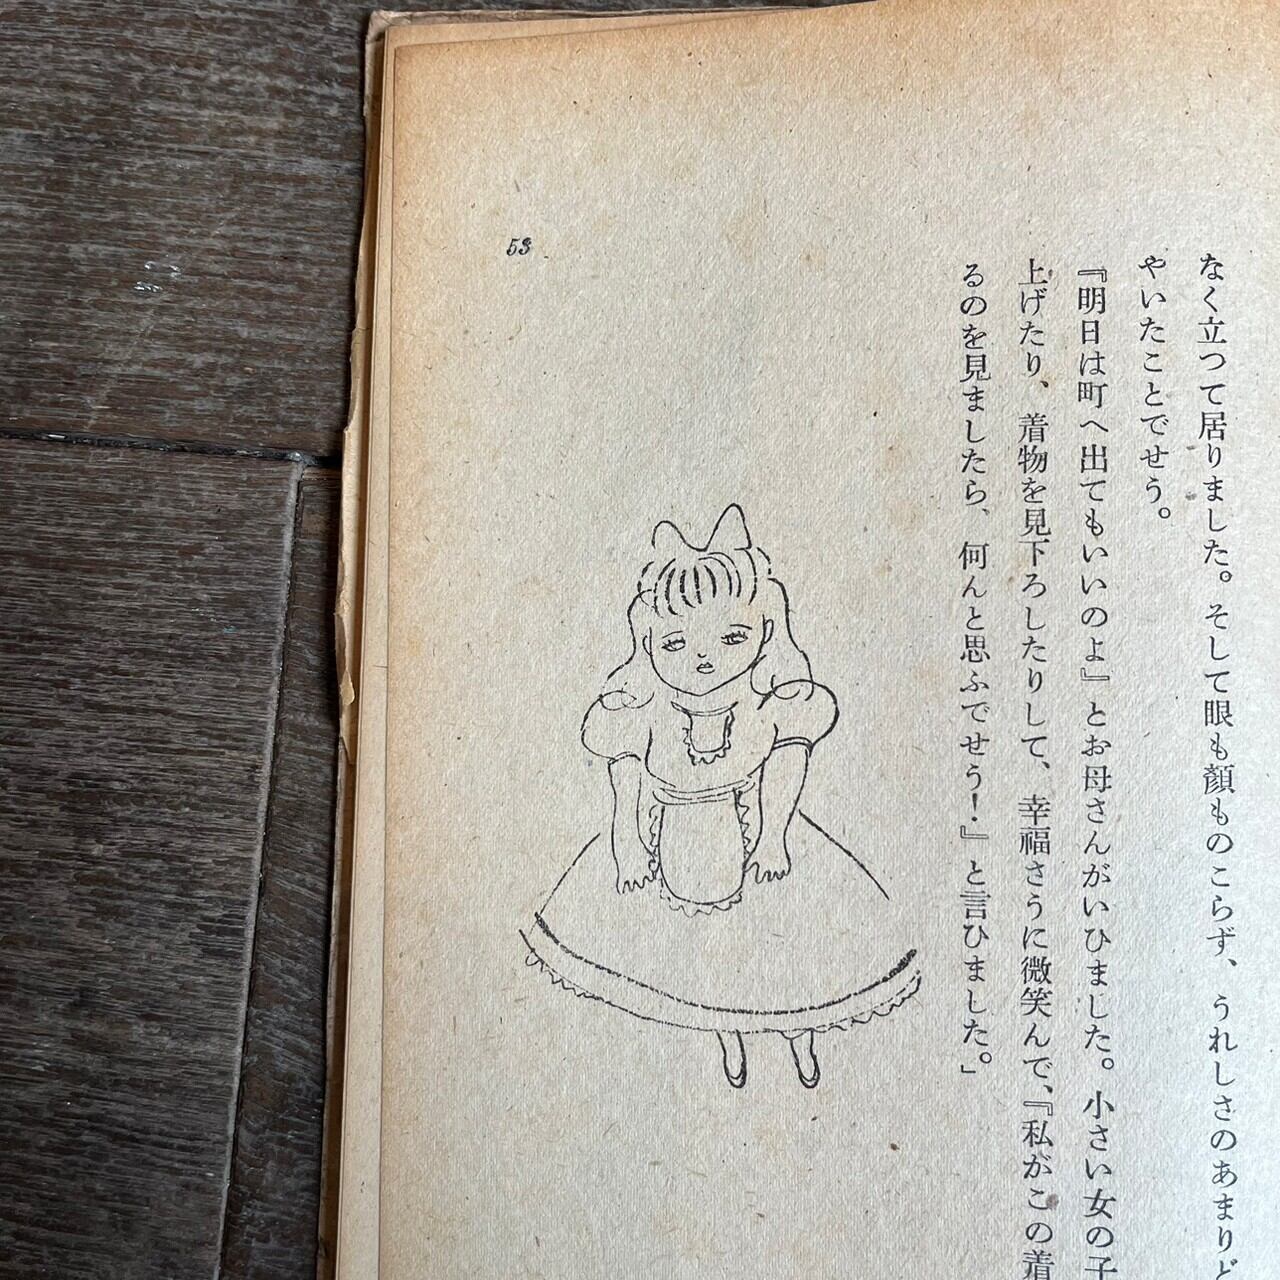 なく立つて居りました。そして眼も顏ものこらず、うれしさのあまりど
やいたことでせう。
『明日は町へ出てもいいのよ』とお母さんがいひました。小さい女の子
上げたり、着物を見下ろしたりして、幸福さうに微笑んで、『私がこの着
るのを見ましたら、何んと思ふでせう！』と言ひました。」
53